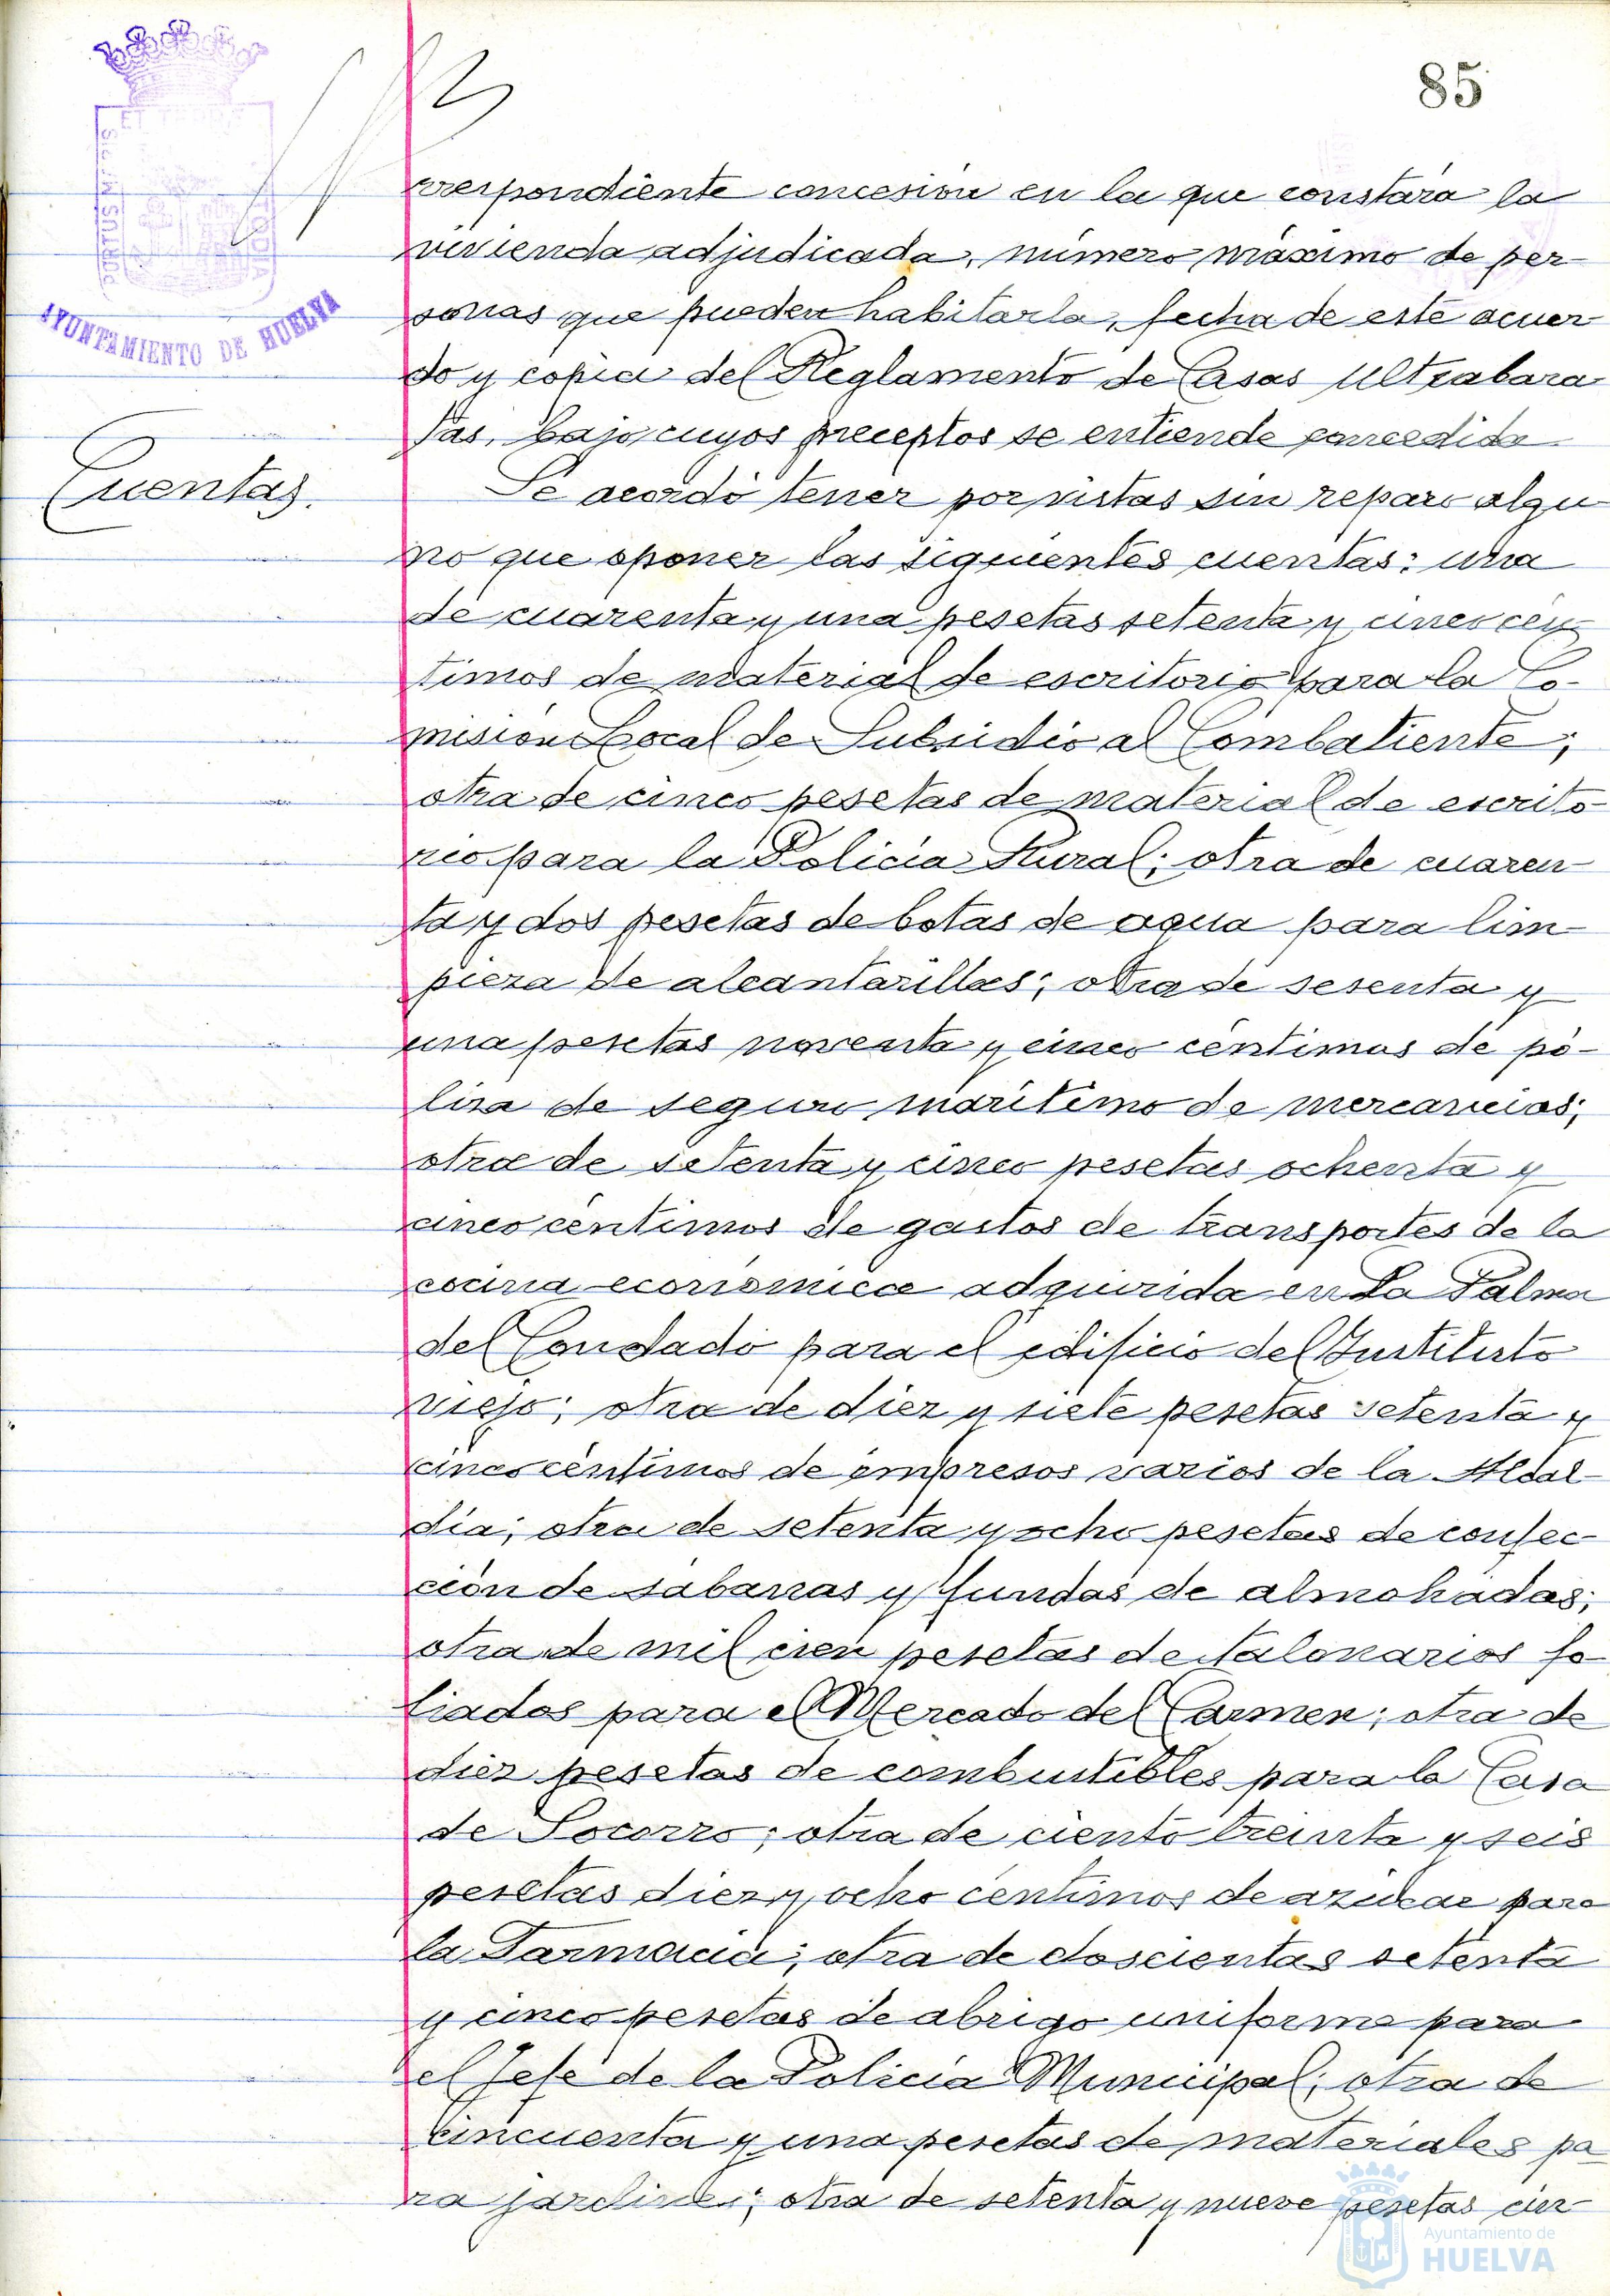 85
rrespondiente concesión en la que constará la
vivienda adjudicada, número máximo de per-
sonas que pueden habitarla, fecha de este acuer-
do y copia del Reglamento de Casas Ultrabara-
tas, bajo cuyos preceptos se entiende concedida.
Cuentas.
Se acordó tener por vistas sin reparo algu-
no que oponer las siguientes cuentas: una
de cuarenta y una pesetas setenta y cinco cén-
timos de material de escritorio para la Co-
misión Local de Subsidio al Combatiente;
otra de cinco pesetas de material de escrito-
rio para la Policía Rural; otra de cuaren-
ta y dos pesetas de botas de agua para lim-
pieza de alcantarillas; otra de sesenta y
una pesetas noventa y cinco céntimos de pó-
liza de seguro marítimo de mercancías;
otra de setenta y cinco pesetas ochenta y
cinco céntimos de gastos de transportes de la
cocina económica adquirida en La Palma
del Condado para el edificio del Instituto
viejo; otra de diez y siete pesetas setenta y
cinco céntimos de impresos varios de la Alcal-
día; otra de setenta y ocho pesetas de confec-
ción de sábanas y fundas de almohadas;
otra de mil cien pesetas de talonarios fo-
liados para el Mercado del Carmen; otra de
diez pesetas de combustibles para la Casa
de Socorro; otra de ciento treinta y seis
pesetas diez y ocho céntimos de azúcar para
la Farmacia; otra de doscientas setenta
y cinco pesetas de abrigo uniforme para
el Jefe de la Policía Municipal; otra de
cincuenta y una pesetas de materiales pa-
ra jardines; otra de setenta y nueve pesetas cin-
AYUNTAMIENTO DE HUELVA
Ayuntamiento de
HUELVA